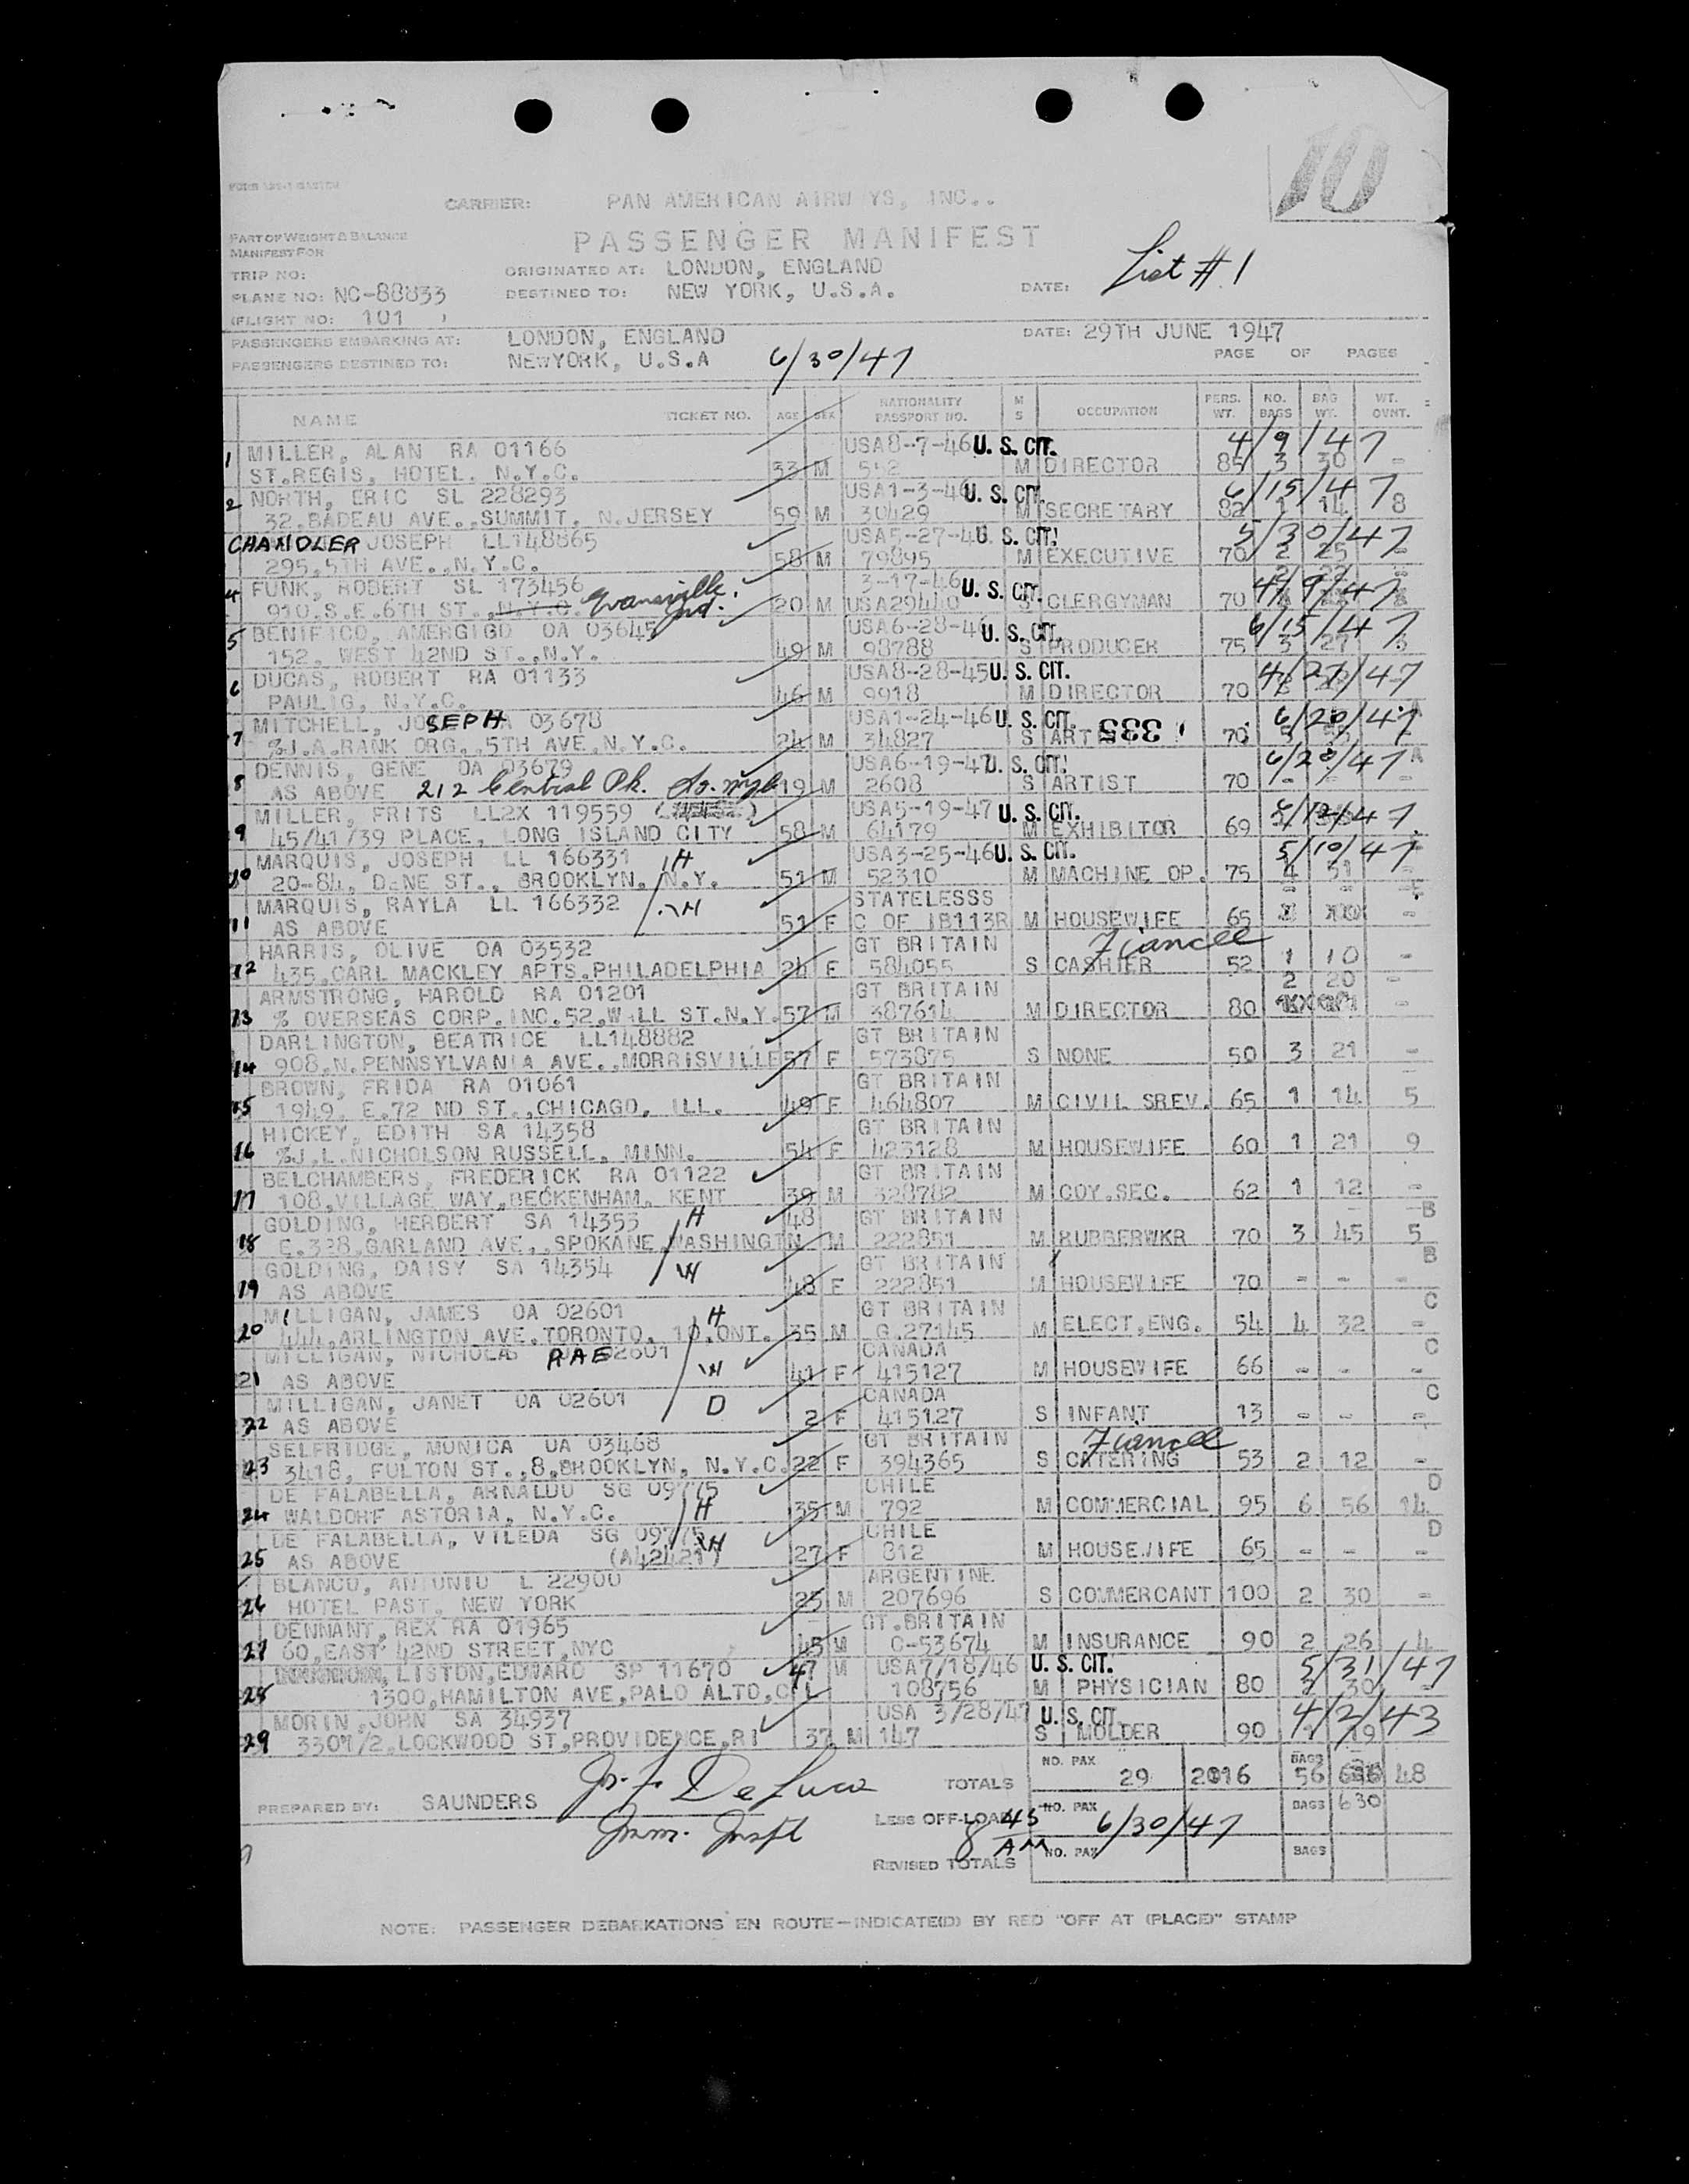 10
CARRIER: PAN AMERICAN AIRW YS, INC..
PART OF WEIGHT & BALANCE
MANIFEST FOR
PASSENGER MANIFEST
List # 1
TRIP NO:
ORIGINATED AT: LONDON, ENGLAND
PLANE NO: NC-88833
DESTINED TO: NEW YORK, U.S.A.
DATE:
(FLIGHT NO: 101 )
PASSENGERS EMBARKING AT: LONDON, ENGLAND
DATE: 29TH JUNE 1947
PASSENGERS DESTINED TO: NEWYORK, U.S.A 6/30/47
PAGE OF PAGES
NAME TICKET NO. AGE SEX NATIONALITY PASSPORT NO. M S OCCUPATION PERS. WT. NO. BAGS BAG WT. WT. OVNT.
1 MILLER, ALAN RA 01166 USA8-7-46 U. S. CIT. 4/9/47
ST.REGIS, HOTEL. N.Y.C. 33 M 552 M DIRECTOR 85 3 30 -
2 NORTH, ERIC SL 228293 USA1-3-46 U. S. CIT. 6/15/47
32.BADEAU AVE.,SUMMIT, N.JERSEY 59 M 30429 M SECRETARY 82 1 14 8
CHANDLER JOSEPH LL148865 USA5-27-46 U. S. CIT. 5/30/47
295.5TH AVE.,N.Y.C. 58 M 79895 M EXECUTIVE 70 2 25 -
4 FUNK, ROBERT SL 173456 Evansville, Ind. 3-17-46 U. S. CIT. 4/9/47
910.S.E.6TH ST.,N.Y.C. 20 M USA29440 S CLERGYMAN 70
5 BENIFICO, AMERGIGO OA 03645 USA6-28-46 U. S. CIT. 6/15/47
152, WEST 42ND ST.,N.Y. 49 M 98788 S PRODUCER 75 3 27 3
6 DUCAS, ROBERT RA 01133 USA8-28-45 U. S. CIT. 4/27/47
PAULIG, N.Y.C. 46 M 9918 M DIRECTOR 70
7 MITCHELL, JOSEPH A 03678 USA1-24-46 U. S. CIT. 335 6/20/47
%J.A.RANK ORG.,5TH AVE.N.Y.C. 24 M 34827 S 70
8 DENNIS, GENE OA 03679 USA6-19-47 U. S. CIT. 6/28/47 A
AS ABOVE 212 Central Pk. So. 19 M 2608 S ARTIST 70 - - -
9 MILLER, FRITS LL2X 119559 USA5-19-47 U. S. CIT. 6/12/47
45/41/39 PLACE, LONG ISLAND CITY 58 M 64179 M EXHIBITOR 69
10 MARQUIS, JOSEPH LL 166331 H USA3-25-46 U. S. CIT. 5/10/47
20-84, DENE ST., BROOKLYN, N.Y. 51 M 52310 M MACHINE OP. 75 4 51
11 MARQUIS, RAYLA LL 166332 W STATELESSS
AS ABOVE 51 F C OF IB113R M HOUSEWIFE 65 -
12 HARRIS, OLIVE OA 03532 GT BRITAIN Fiancee
435.CARL MACKLEY APTS.PHILADELPHIA 24 F 584055 S CASHIER 52 1 10 -
13 ARMSTRONG, HAROLD RA 01201 GT BRITAIN 2 20 -
% OVERSEAS CORP.INC.52.WALL ST.N.Y. 57 M 387614 M DIRECTOR 80 -
14 DARLINGTON, BEATRICE LL148882 GT BRITAIN
908.N.PENNSYLVANIA AVE.,MORRISVILLE 57 F 573875 S NONE 50 3 21 -
15 BROWN, FRIDA RA 01061 GT BRITAIN
1949, E.72 ND ST.,CHICAGO, ILL. 49 F 464807 M CIVIL SREV. 65 1 14 5
16 HICKEY, EDITH SA 14358 GT BRITAIN
%J.L.NICHOLSON RUSSELL, MINN. 54 F 423128 M HOUSEWIFE 60 1 21 9
17 BELCHAMBERS, FREDERICK RA 01122 GT BRITAIN
108.VILLAGE WAY,BECKENHAM, KENT 39 M 328782 M COY.SEC. 62 1 12 -
18 GOLDING, HERBERT SA 14353 H 48 GT BRITAIN B
E.328.GARLAND AVE., SPOKANE,WASHINGTN M 222851 M RUBBERWKR 70 3 45 5
19 GOLDING, DAISY SA 14354 W GT BRITAIN B
AS ABOVE 48 F 222851 M HOUSEWIFE 70 - - -
20 MILLIGAN, JAMES OA 02601 H GT BRITAIN C
444.ARLINGTON AVE.TORONTO, 10.ONT. 35 M G.27145 M ELECT.ENG. 54 4 32 -
21 MILLIGAN, NICHOLAS RAE 02601 W CANADA C
AS ABOVE 41 F 415127 M HOUSEWIFE 66 - - -
22 MILLIGAN, JANET OA 02601 D CANADA C
AS ABOVE 2 F 415127 S INFANT 13 - - -
23 SELFRIDGE, MONICA OA 03468 GT BRITAIN Fiancee
3418, FULTON ST.,8.BROOKLYN, N.Y.C. 22 F 394365 S CATERING 53 2 12 -
24 DE FALABELLA, ARNALDO SG 09775 H CHILE D
WALDORF ASTORIA, N.Y.C. 35 M 792 M COMMERCIAL 95 6 56 14
25 DE FALABELLA, VILEDA SG 09775 W CHILE D
AS ABOVE (A42421) 27 F 812 M HOUSEWIFE 65 - - -
26 BLANCO, ANTONIO L 22900 ARGENTINE
HOTEL PAST. NEW YORK 25 M 207696 S COMMERCANT 100 2 30 -
27 DENNANT,REX RA 01965 GT.BRITAIN
60.EAST 42ND STREET,NYC 45 M C-53674 M INSURANCE 90 2 26 4
28 LISTON,EDWARD SP 11670 47 M USA7/18/46 U. S. CIT. 5/31/47
1300,HAMILTON AVE,PALO ALTO,CAL 108756 M PHYSICIAN 80 30
29 MORIN,JOHN SA 34937 USA 3/28/47 U. S. CIT. 4/2/43
3307/2.LOCKWOOD ST,PROVIDENCE,RI 37 M 147 S MOLDER 90 1 19
TOTALS NO. PAX 29 2016 BAGS 56 48
PREPARED BY: SAUNDERS
Jo. F. De Luca
Imm. Inspt
LESS OFF-LOAD NO. PAX BAGS 630
8 45 AM 6/30/47
REVISED TOTALS NO. PAX BAGS
NOTE: PASSENGER DEBARKATIONS EN ROUTE—INDICATE(D) BY RED "OFF AT (PLACE)" STAMP